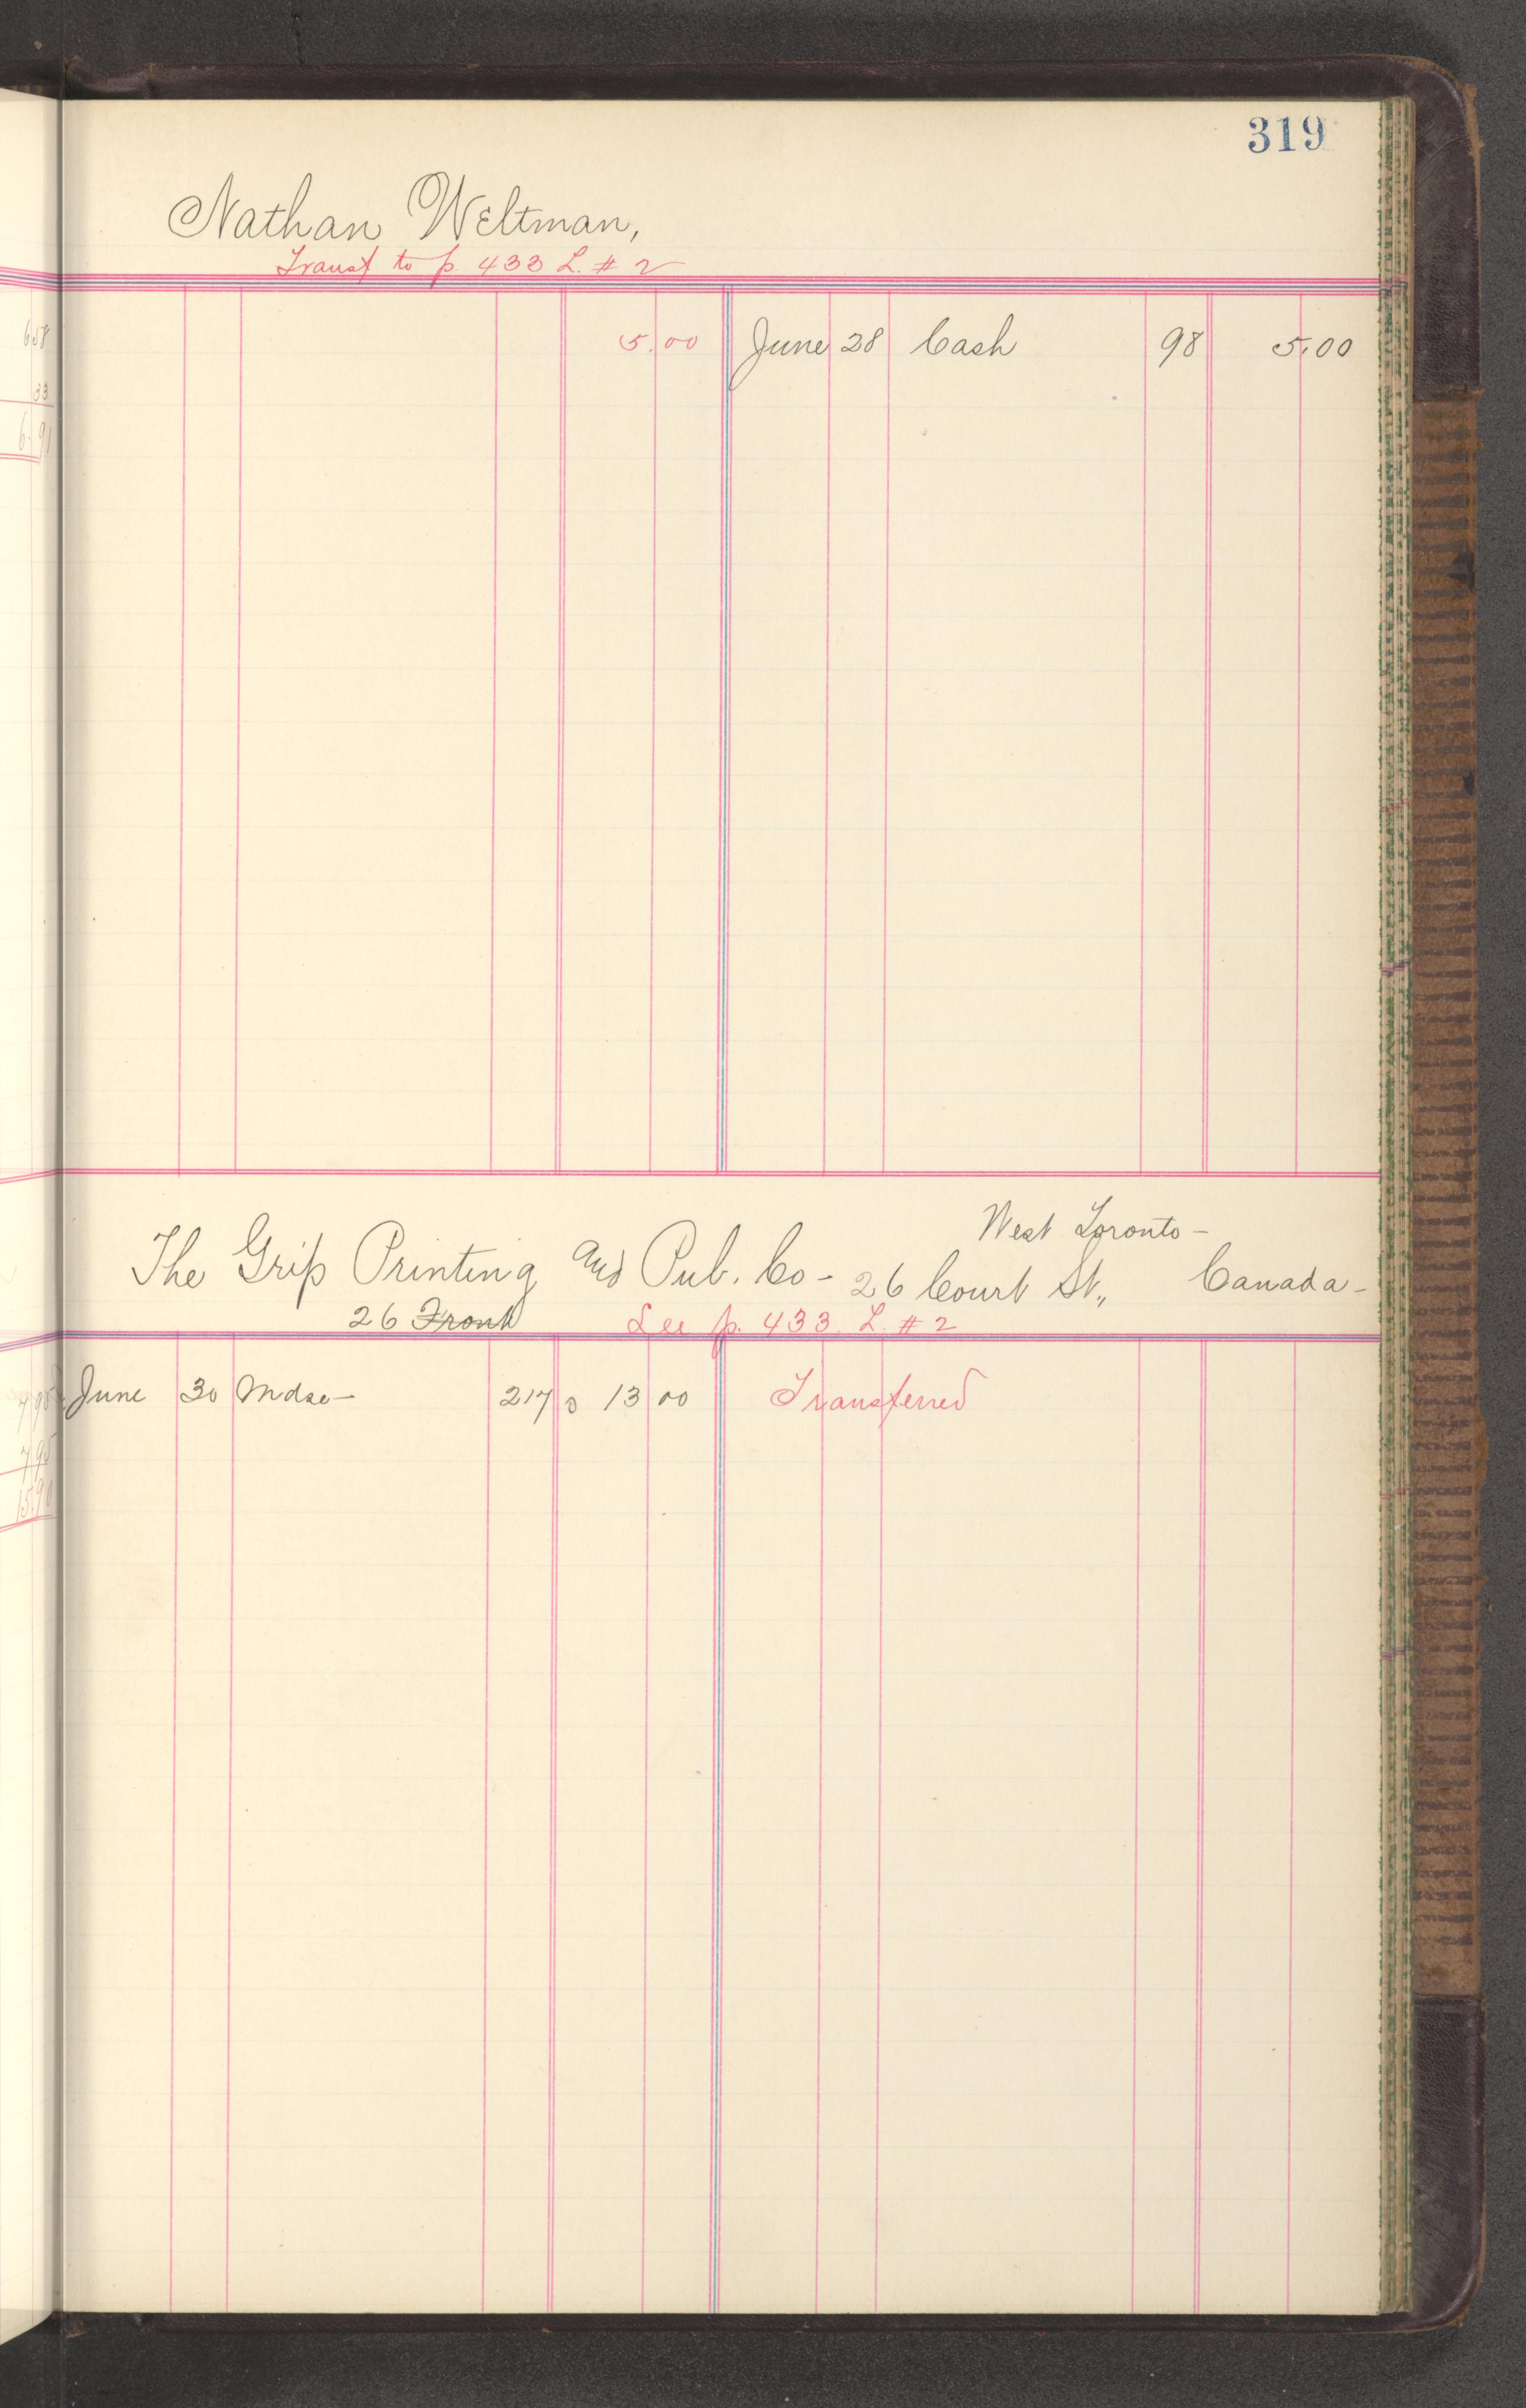 319
Nathan Weltman,
Transf to p. 433 L. # 2
5.00 June 28 Cash 98 5.00
658
33
6.91
West Toronto -
The Grip Printing and Pub. Co - 26 Court St., Canada -
26 Front See p. 433 L. # 2
June 30 Mdse - 217 13 00 Transferred
7 95
7 95
15.90